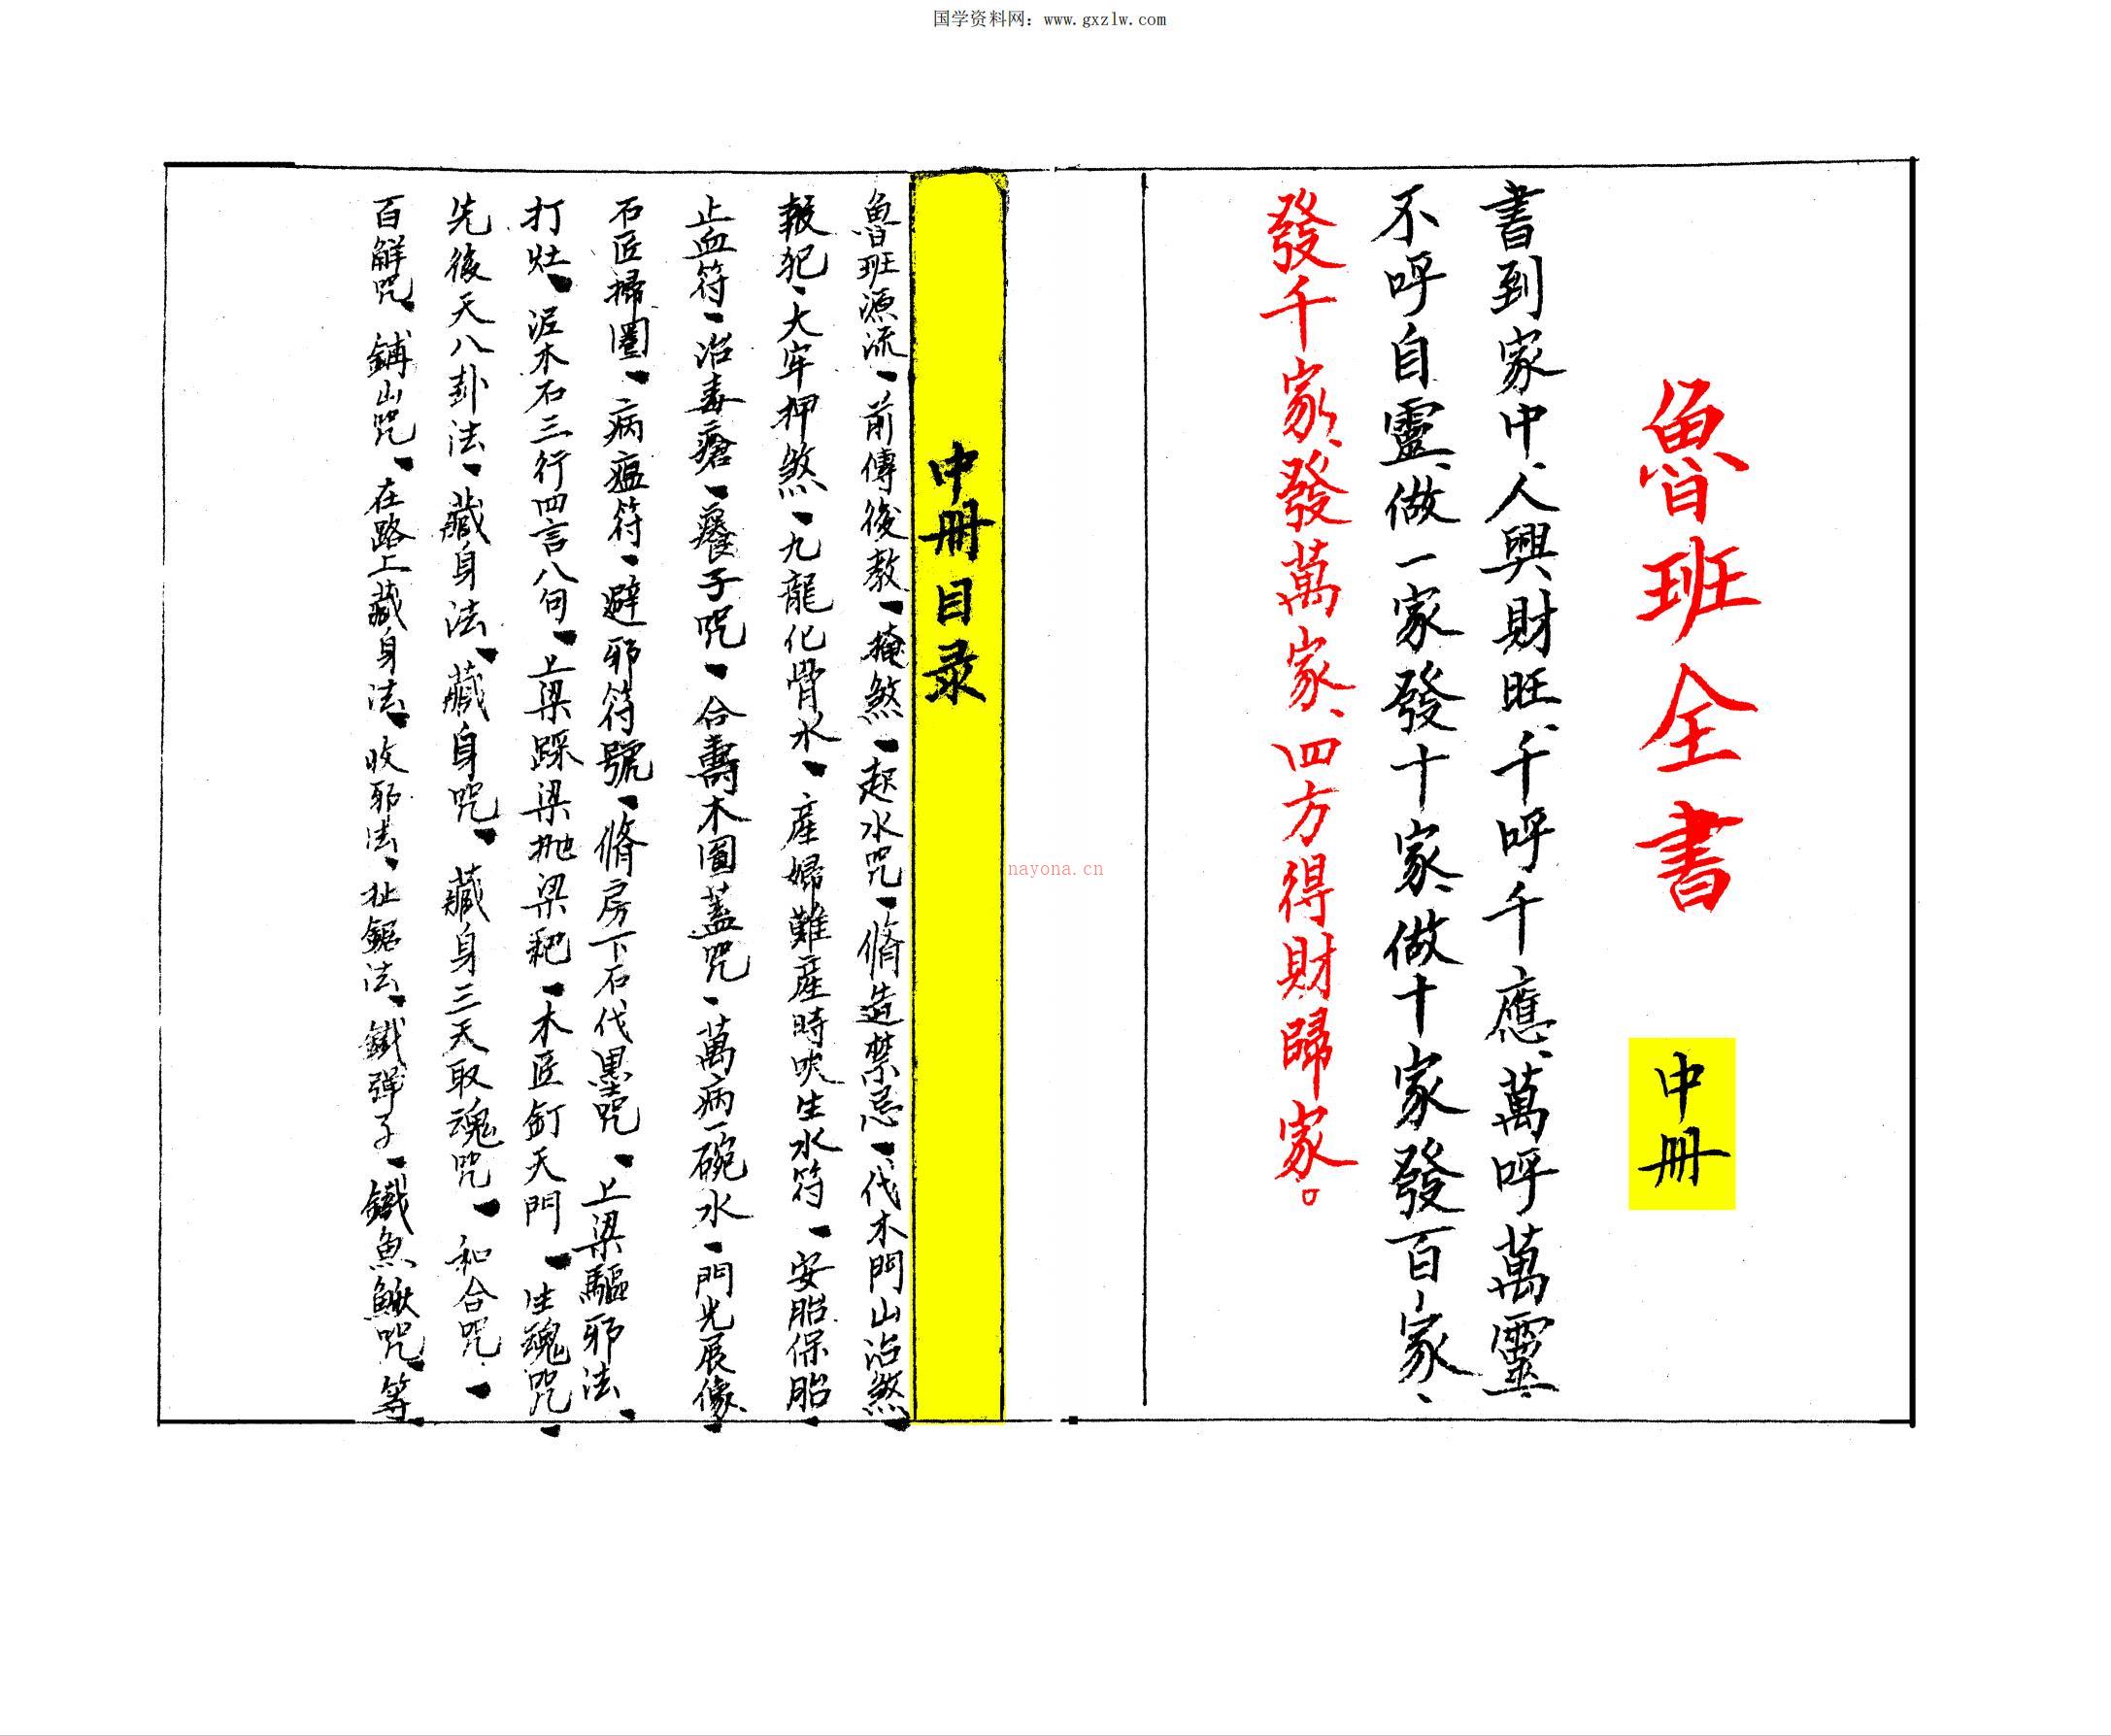 国学资料网：www.gxzlw.com
魯班全書
中册
書到家中、人興財旺、千呼千應、萬呼萬靈、
不呼自靈、做一家發十家、做十家發百家、
發千家、發萬家、四方得財歸家。
nayona.cn
中册目录
魯班源流、前傳後教、掩煞、起水咒、脩造禁忌、伐木門山治煞、
報犯、大牢押煞、九龍化骨水、產婦難產時吹生水符、安胎保胎、
止血符、治毒瘡、癢子咒、合壽木圖蓋咒、萬病一碗水、門光展像、
石匠掃圈、病瘟符、避邪符號、脩房下石伐墨咒、上梁驅邪法、
打灶、泥木石三行四言八句、上梁踩梁抛梁粑、木匠釘天門、生魂咒、
先後天八卦法、藏身法、藏身咒、藏身三天取魂咒、和合咒、
百解咒、鋪山咒、在路上藏身法、收邪法、扯鋸法、鐵彈子、鐵魚鰍咒、等、